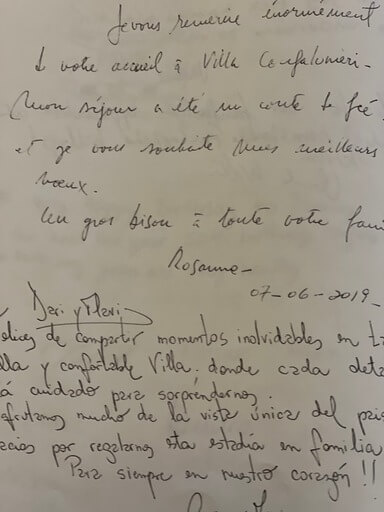 Je vous remercie énormément
de votre accueil à Villa Confalonieri-
Mon séjour a été un conte de fé
et je vous souhaite mes meilleurs
voeux.
Un gros bisou à toute votre fami
Rosanne-
07-06-2019_
Dari y Mari
elices de compartir momentos inolvidables en ta
lla y confortable Villa. donde cada deta
á cuidado para sorprendernos.
sfrutamos mucho de la vista única del pais
acias por regalarnos esta estadía en familia
Para siempre en nuestro corazón!!